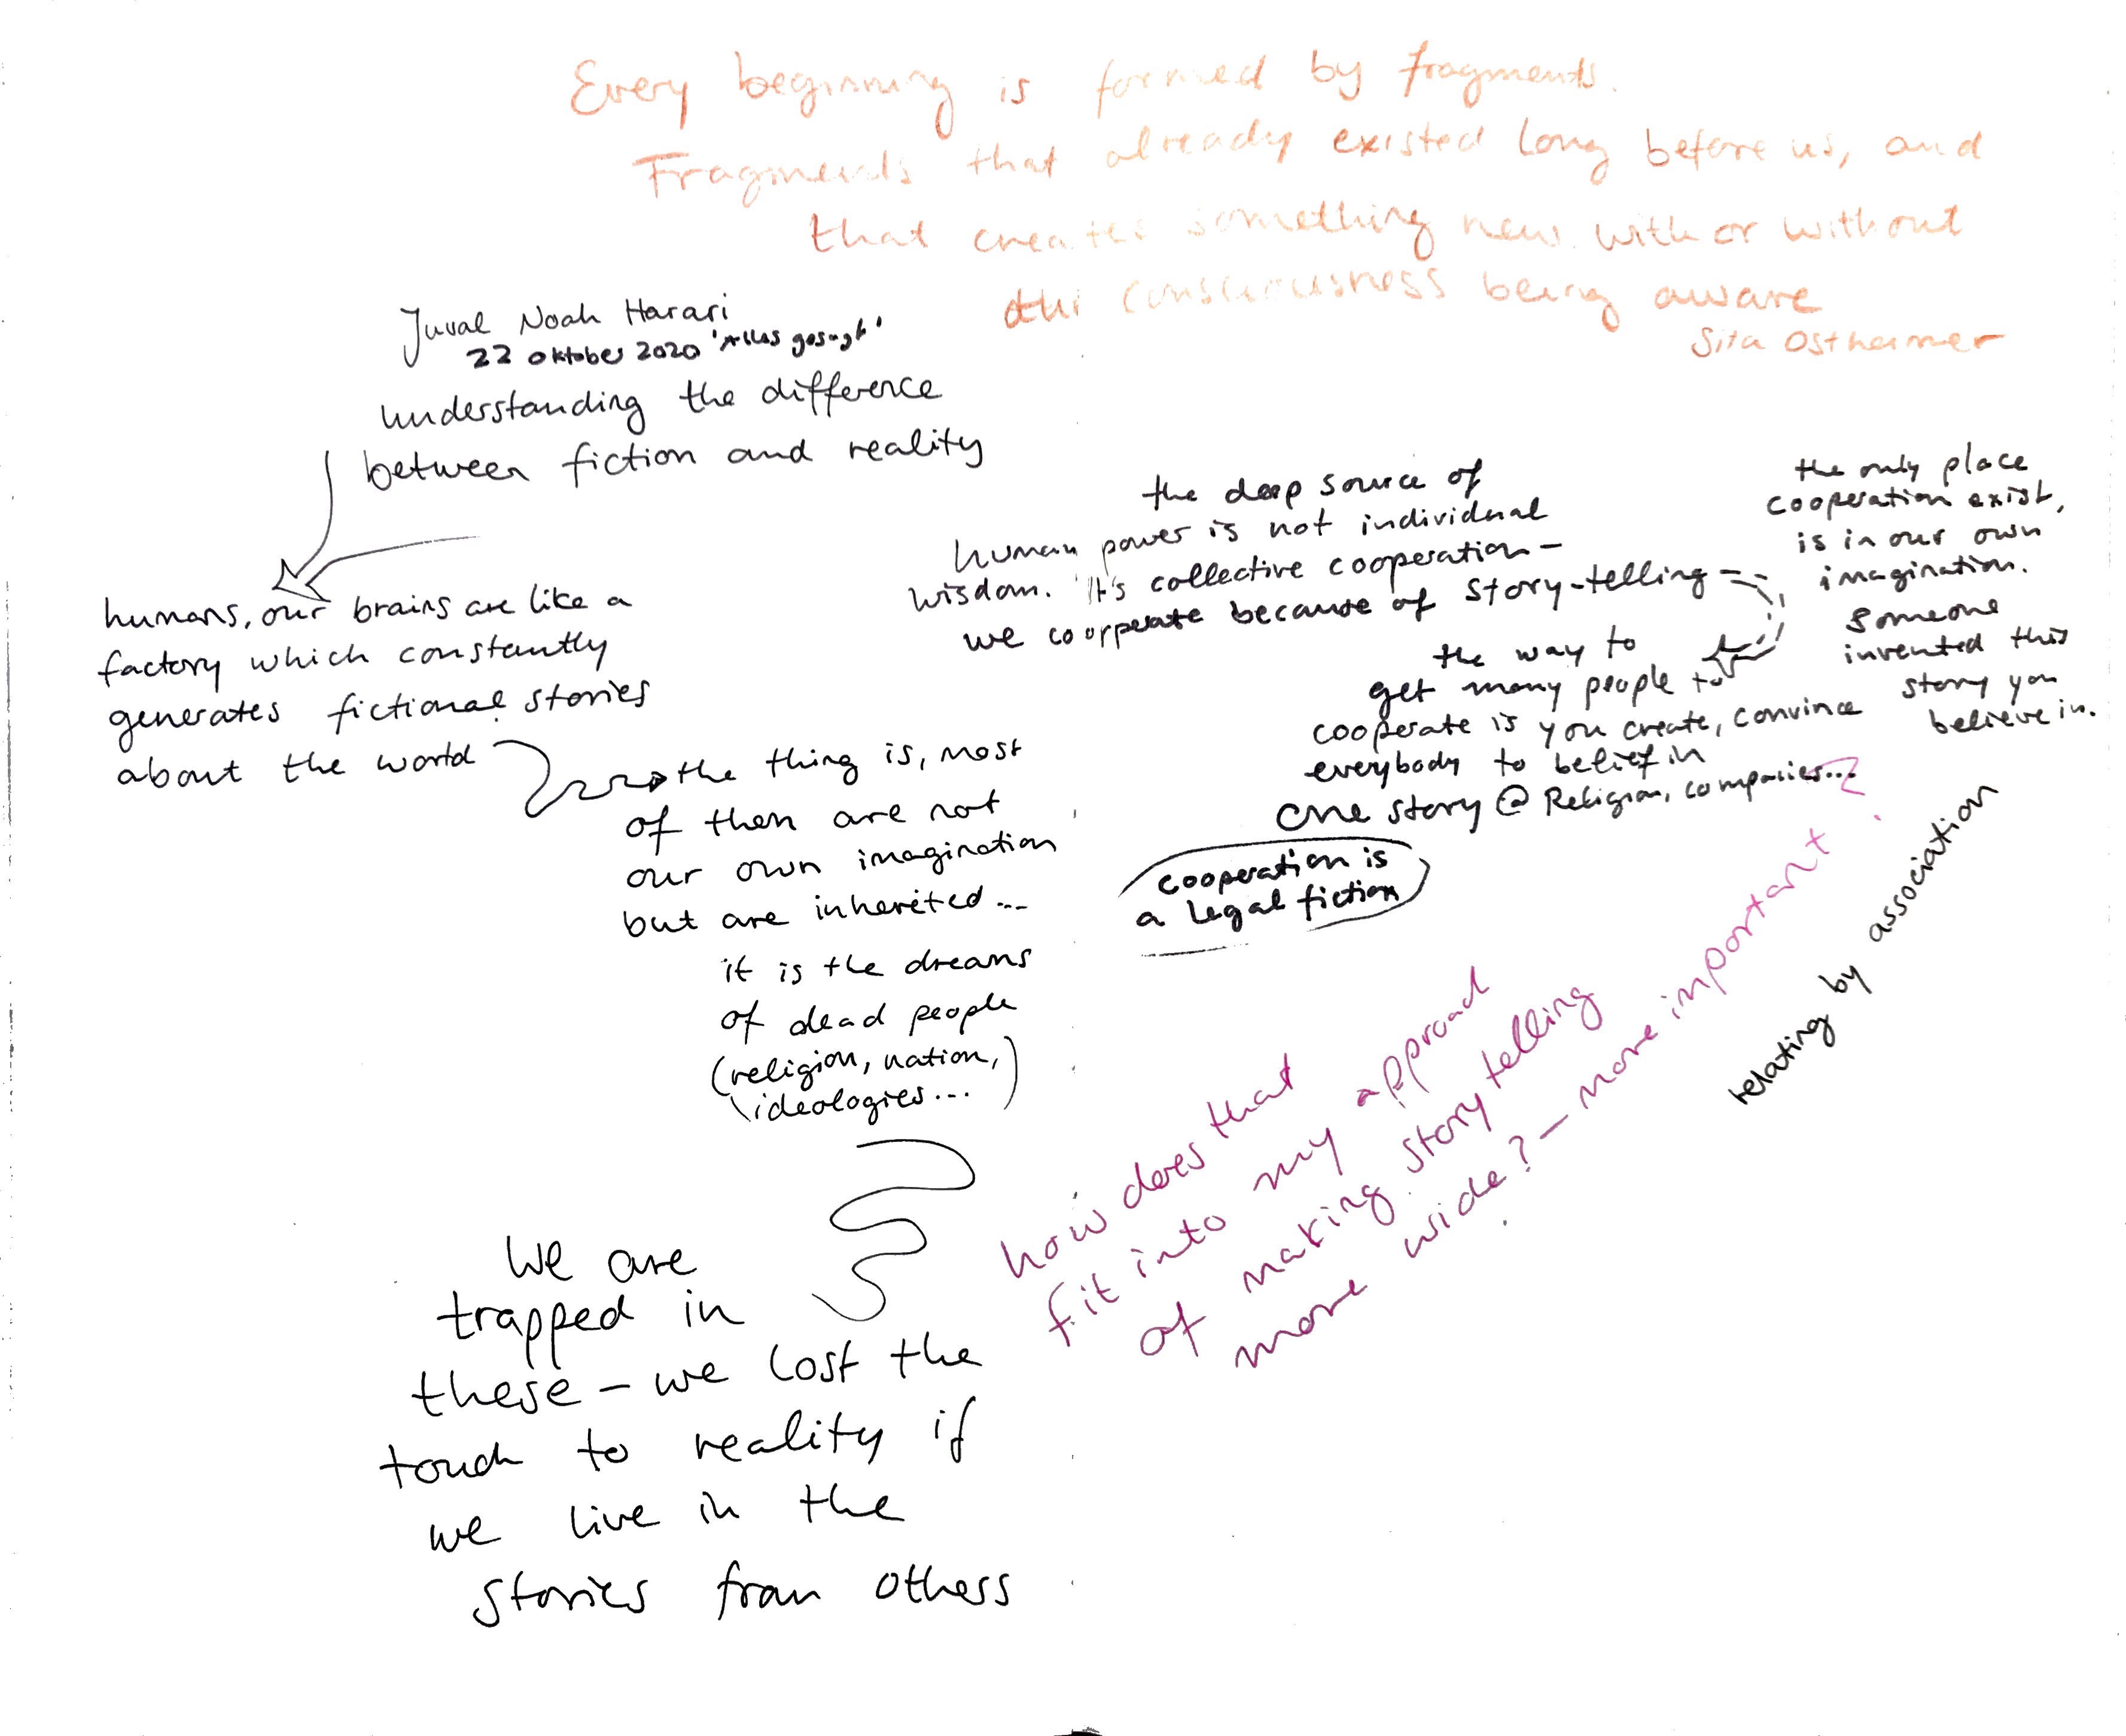 Every beginning is formed by fragments.
Fragments that already existed long before us, and
that creates something new with or without
consciousness being aware
Sita Ostheimer
Juval Noah Harari
22 Oktober 2020 'Alles gesagt'
understanding the difference
between fiction and reality
humans, our brains are like a
factory which constantly
generates fictional stories
about the world
the thing is, most
of them are not
our own imagination
but are inherited...
it is the dreams
of dead people
(religion, nation,
ideologies...)
We are
trapped in
these - we lost the
touch to reality if
we live in the
stories from others
the deep source of
human power is not individual
wisdom. It's collective cooperation -
we coorperate because of story-telling
the way to
get many people to
cooperate is you create, convince
everybody to belief in
one story @ Religion, companies...
cooperation is
a legal fiction
the only place
cooperation exist,
is in our own
imagination.
someone
invented this
story you
believe in.
how does that
fit into my approach
of making story telling
more wide? - more important?
relating by association